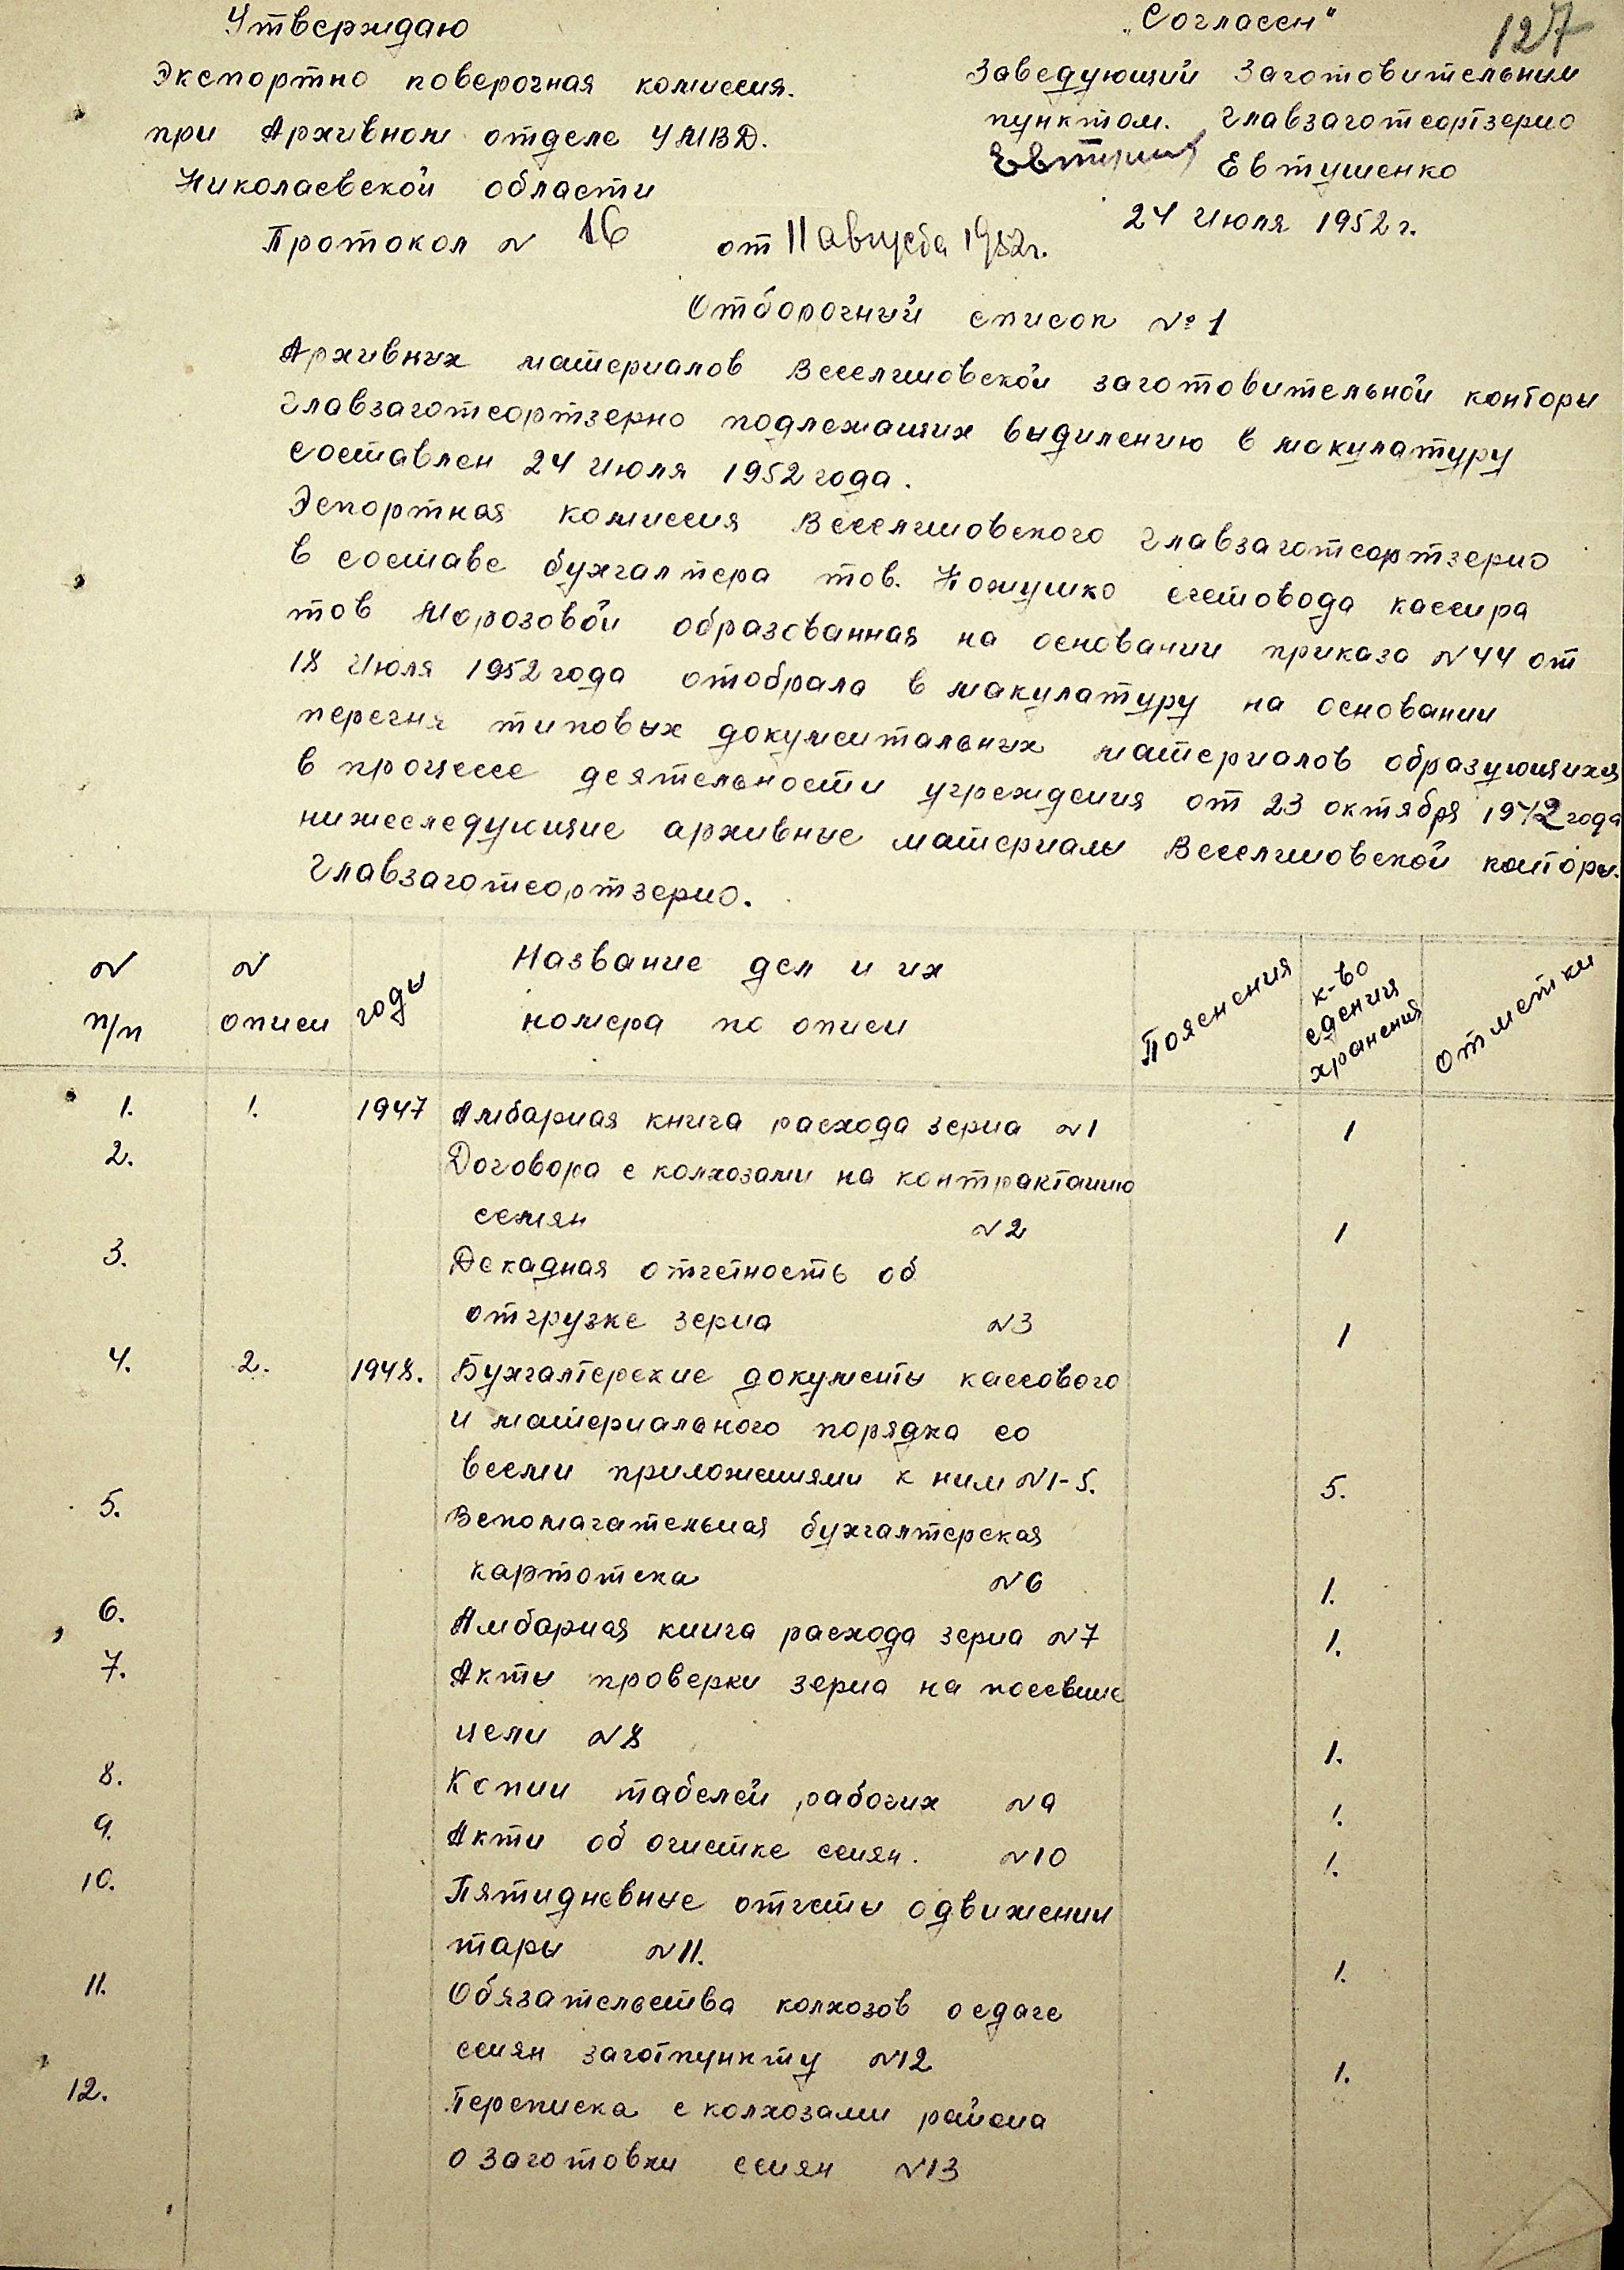 127
Утверждаю
Экспортно поверочная комиссия.
при Архивном отделе УМВД.
Николаевской области
Протокол N 16 от 11 августа 1952г.
„Согласен"
Заведующий Заготовительным
пунктом. Главзаготсортзерно
Евтушенко
24 Июля 1952г.
Отборочный список № 1
Архивных материалов Веселиновской заготовительной конторы
Главзаготсортзерно подлежащих выдилению в макулатуру
составлен 24 Июля 1952 года.
Эспортная комиссия Веселиновского Главзаготсортзерно
в составе бухгалтера тов. Кожушко счетовода кассира
тов Морозовой образованная на основании приказа N 44 от
18 Июля 1952 года отобрала в макулатуру на основании
перечня типовых документальных материалов образующихся
в процессе деятельности учреждения от 23 октября 1942 года
нижеследующие архивные материалы Веселиновской конторы.
Главзаготсортзерно.
N п/п N описи годы Название дел и их номера по описи Пояснения к-во едениця хранения Отметки
1. 1. 1947 Амбарная книга расхода зерна N 1 1
2. Договора с колхозами на контрактацию
семян N 2 1
3. Декадная отчетность об
отгрузке зерна N 3 1
4. 2. 1948. Бухгалтерские документы кассового
и материального порядка со
всеми приложениями к ним N 1-5. 5.
5. Вспомагательная бухгалтерская
картотека N 6 1.
6. Амбарная книга расхода зерна N 7 1.
7. Акты проверки зерна на посевные
цели N 8 1.
8. Копии табелей рабочих N 9 1.
9. Акты об очистке семян. N 10 1.
10. Пятидневные отчеты о движении
тары N 11. 1.
11. Обязательства колхозов о сдаче
семян заготпункту N 12 1.
12. Переписка с колхозами района
о заготовки семян N 13